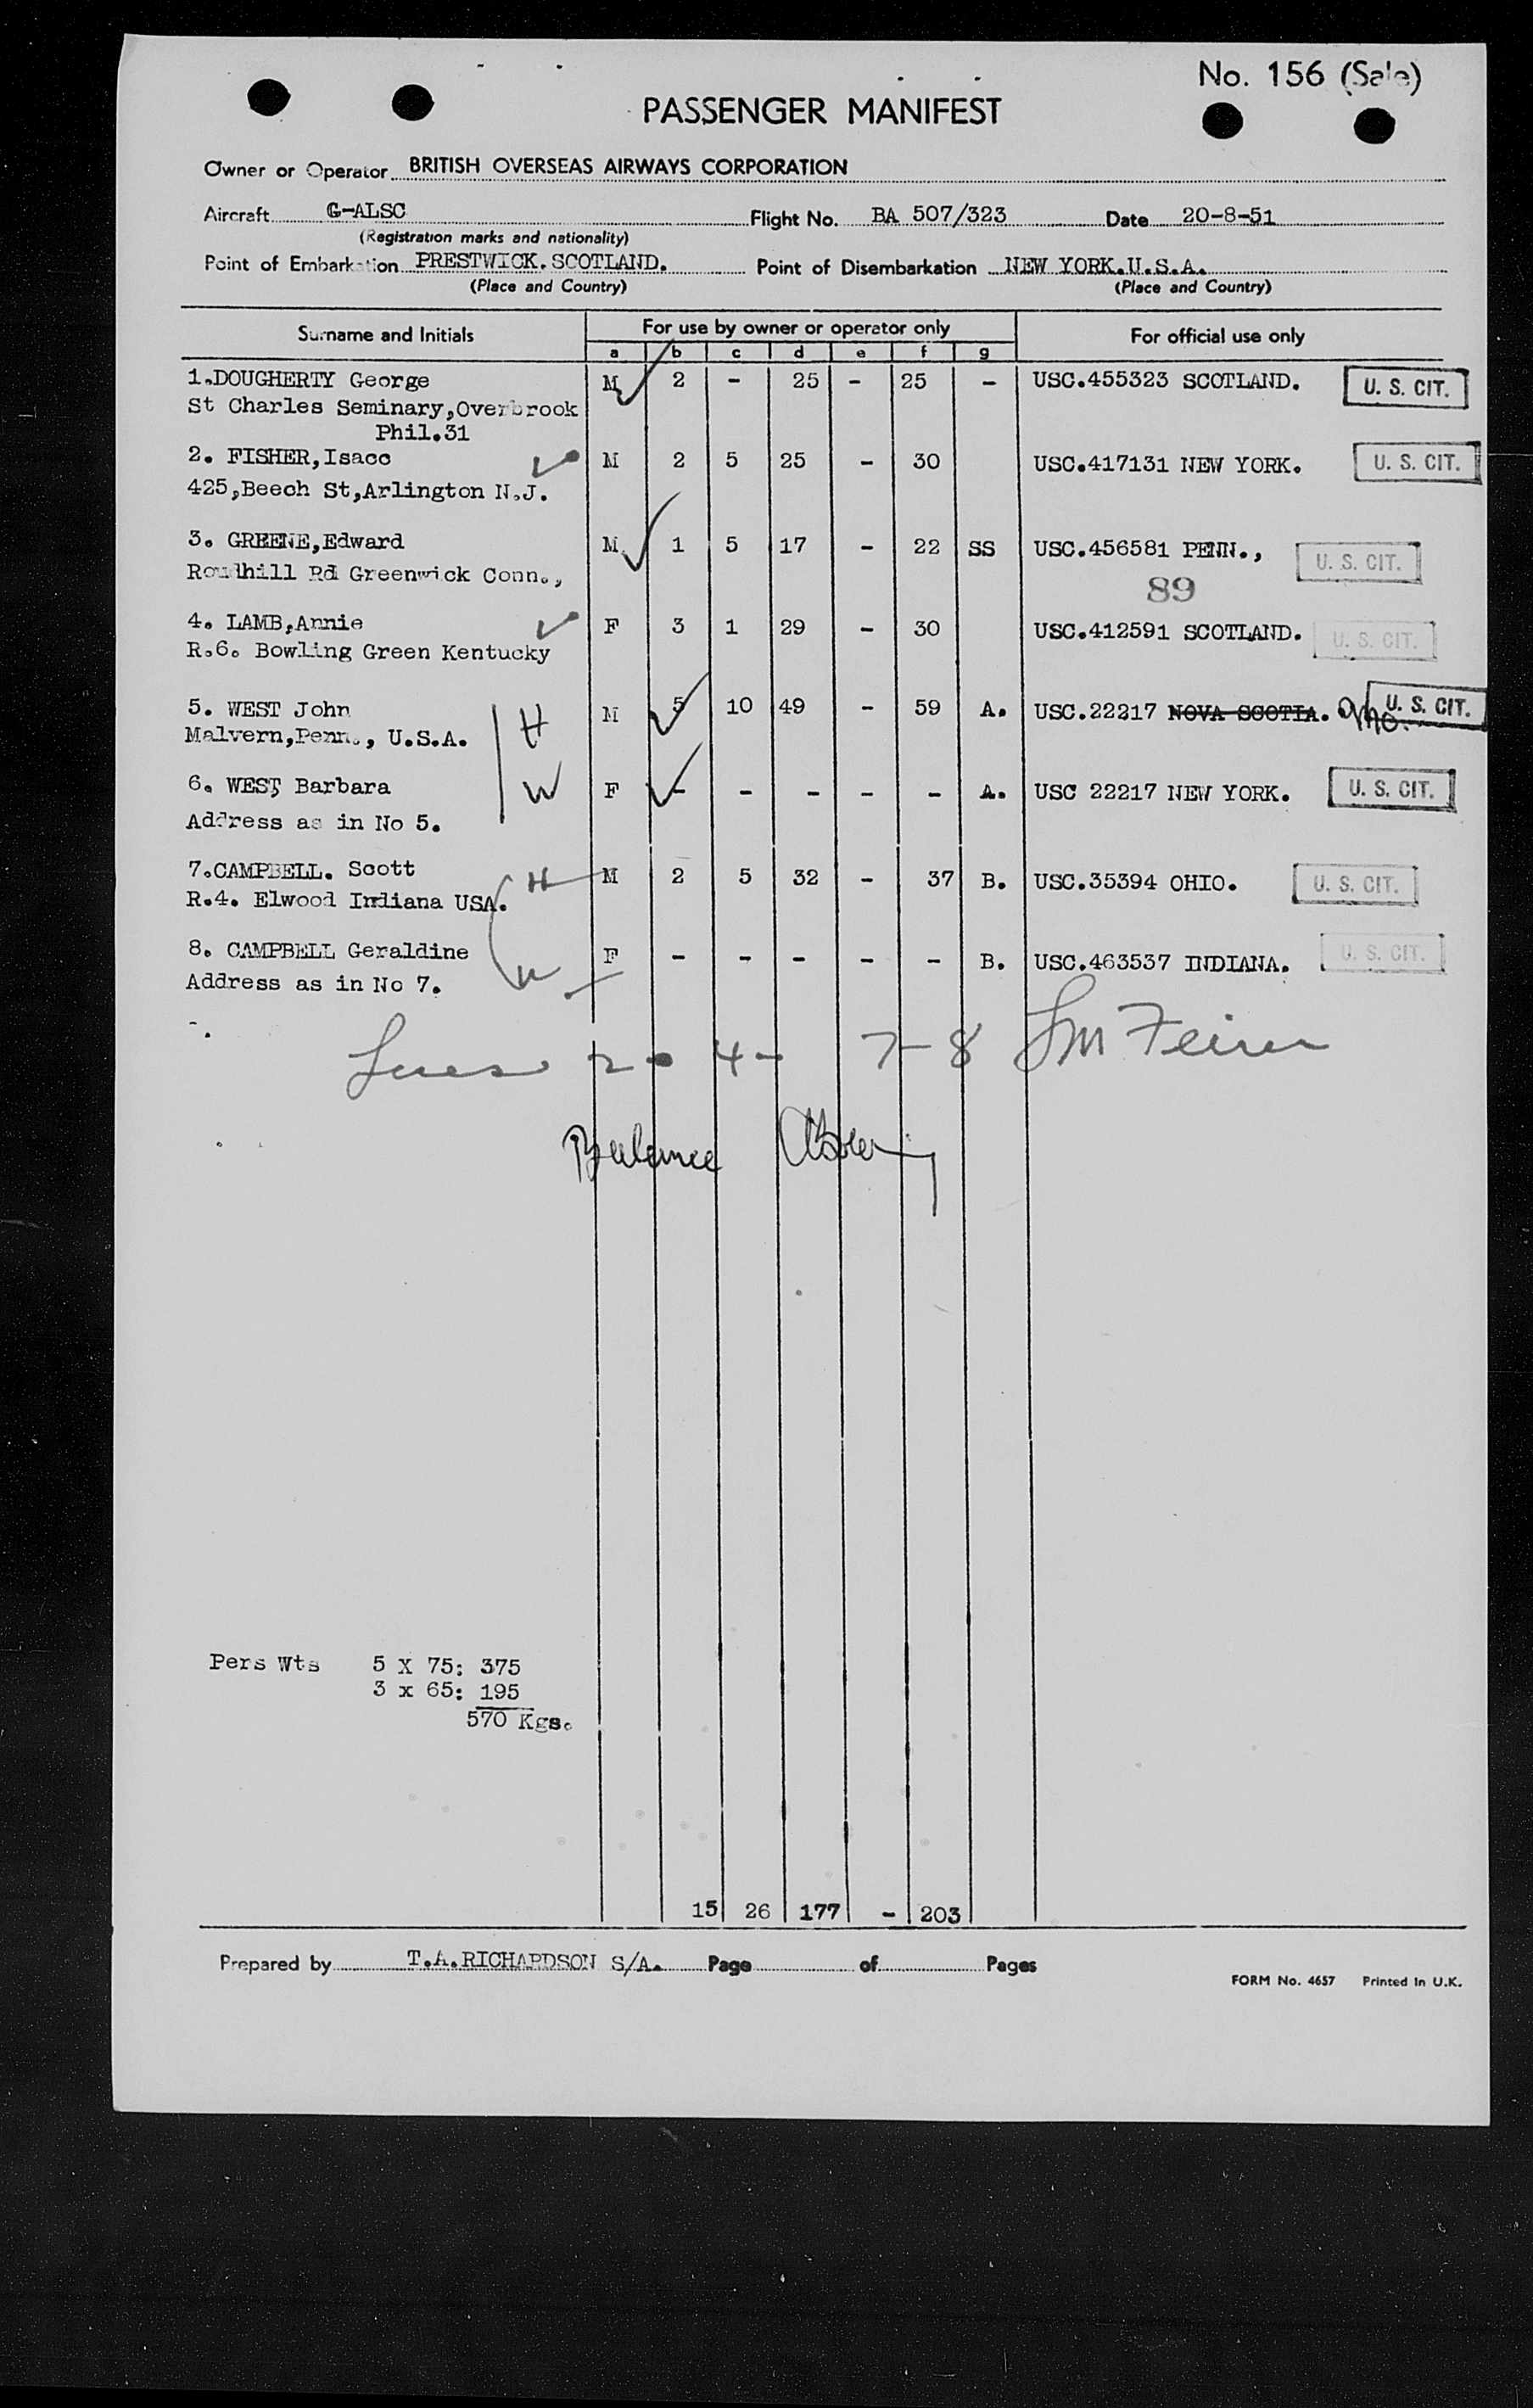 No. 156 (Sale)
PASSENGER MANIFEST
Owner or Operator BRITISH OVERSEAS AIRWAYS CORPORATION
Aircraft G-ALSC Flight No. BA 507/323 Date 20-8-51
(Registration marks and nationality)
Point of Embarkation PRESTWICK.SCOTLAND. Point of Disembarkation NEW YORK.U.S.A.
(Place and Country) (Place and Country)
Surname and Initials For use by owner or operator only For official use only
a b c d e f g
1.DOUGHERTY George M 2 - 25 - 25 - USC.455323 SCOTLAND. U. S. CIT.
St Charles Seminary,Overbrook
Phil.31
2. FISHER,Isacc M 2 5 25 - 30 USC.417131 NEW YORK. U. S. CIT.
425,Beech St,Arlington N.J.
3. GREENE,Edward M. 1 5 17 - 22 SS USC.456581 PENN., U. S. CIT.
Roudhill Rd Greenwick Conn.,
89
4. LAMB,Annie F 3 1 29 - 30 USC.412591 SCOTLAND. U. S. CIT.
R.6. Bowling Green Kentucky
5. WEST John H M 5 10 49 - 59 A. USC.22217 NOVA SCOTIA. U. S. CIT.
Malvern,Penn., U.S.A.
6. WEST Barbara W F - - - - - A. USC 22217 NEW YORK. U. S. CIT.
Address as in No 5.
7.CAMPBELL. Scott H M 2 5 32 - 37 B. USC.35394 OHIO. U. S. CIT.
R.4. Elwood Indiana USA.
8. CAMPBELL Geraldine W F - - - - - B. USC.463537 INDIANA. U. S. CIT.
Address as in No 7.
2 - 4 - 7-8
Balance
Pers Wts 5 X 75: 375
3 x 65: 195
570 Kgs.
15 26 177 - 203
Prepared by T.A.RICHARDSON S/A. Page of Pages
FORM No. 4657 Printed in U.K.